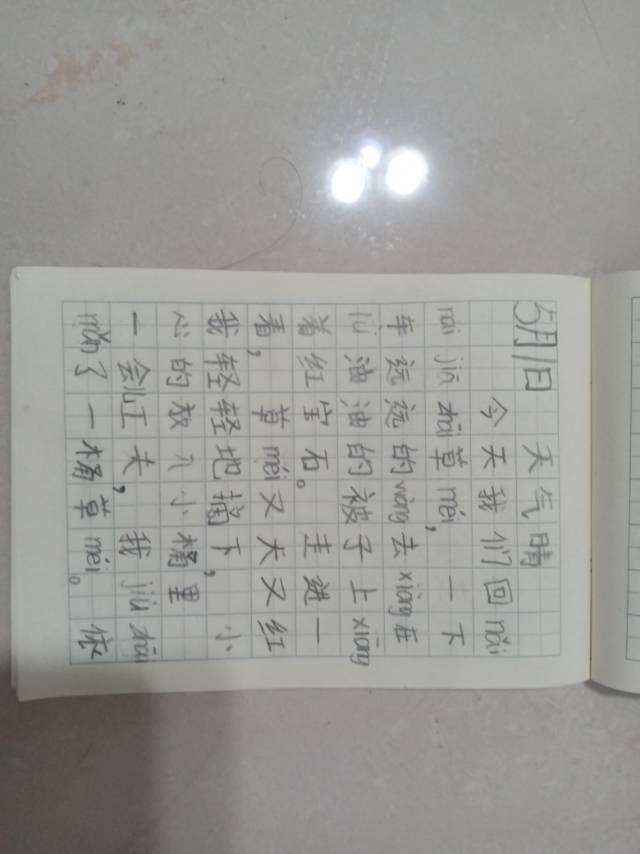 5月1日 天气晴
今天我们回nǎi
nai jiā zhāi草méi，一下
车远远的wàng去xiàng在
lǜ油油的被子上xiāng
着红宝石。走进一
看，草méi又大又红
我轻轻地摘下，小
心的放入小桶里
一会儿工夫，我jiù zhāi
mǎn了一桶草méi。依